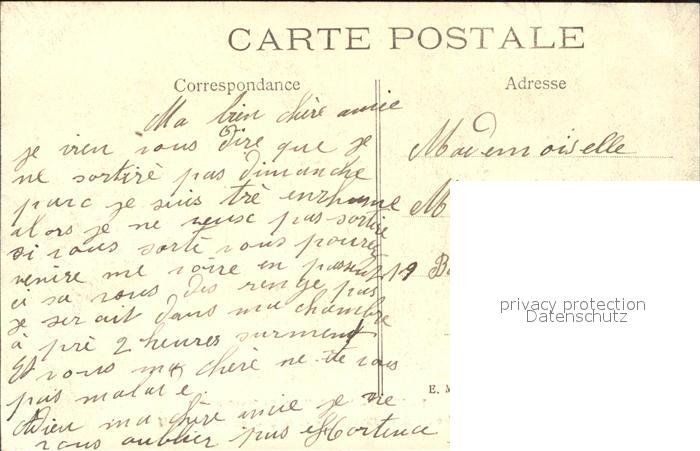 CARTE POSTALE
Correspondance
Adresse
Ma bien chère amie
je vien vous dire que je
ne sortiré pas dimanche
parc je suis tré enrhume
alors je ne veuse pas sortire
si vous sorté vous pouré
venire me voire en passent
si sa vous des renge pas
je serait dans ma chambre
à pré 2 heures surment
Et vous ma cherè ne vous
pas malade
Adieu ma chère amie je ne
vous oublier pas Hortence
Mademoiselle
M
19 B
E. M
privacy protection
Datenschutz